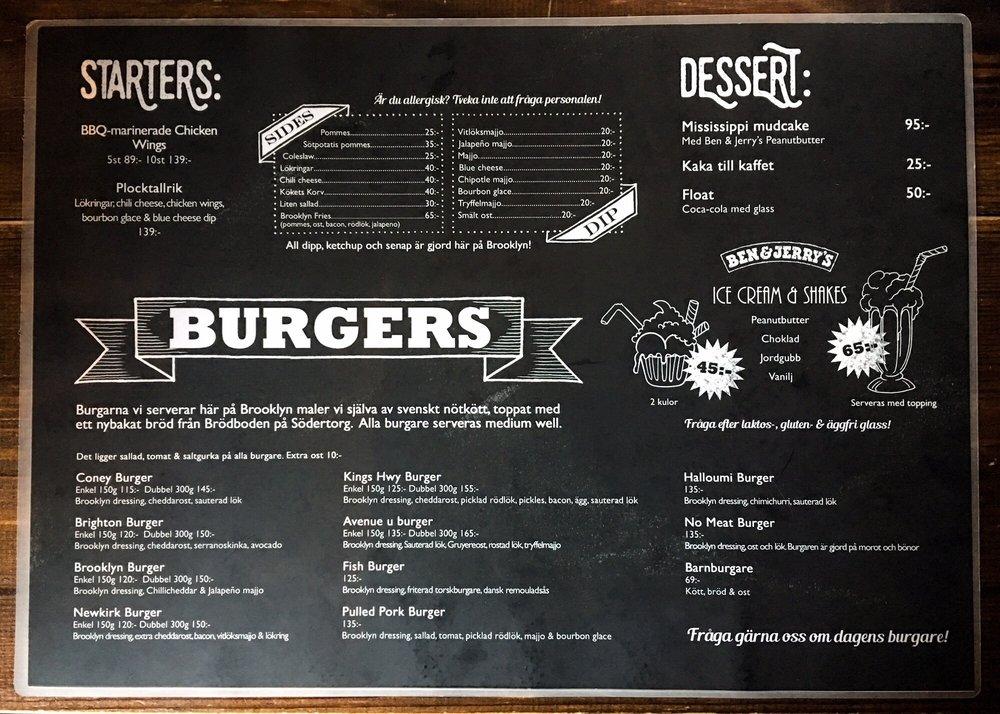 STARTERS:
BBQ-marinerade Chicken
Wings
5st 89:- 10st 139:-
Plocktallrik
Lökringar, chili cheese, chicken wings,
bourbon glace & blue cheese dip
139:-
Är du allergisk? Tveka inte att fråga personalen!
SIDES
Pommes 25:-
Sötpotatis pommes 35:-
Coleslaw 25:-
Lökringar 40:-
Chili cheese 40:-
Kökets Korv 40:-
Liten sallad 30:-
Brooklyn Fries 65:-
(pommes, ost, bacon, rödlök, jalapeno)
Vitlöksmajjo 20:-
Jalapeño majjo 20:-
Majjo 20:-
Blue cheese 20:-
Chipotle majjo 20:-
Bourbon glace 20:-
Tryffelmajjo 20:-
Smält ost 20:-
DIP
All dipp, ketchup och senap är gjord här på Brooklyn!
DESSERT:
Mississippi mudcake 95:-
Med Ben & Jerry's Peanutbutter
Kaka till kaffet 25:-
Float 50:-
Coca-cola med glass
BEN & JERRY'S
ICE CREAM & SHAKES
Peanutbutter
Choklad
Jordgubb
Vanilj
45:-
2 kulor
65:-
Serveras med topping
Fråga efter laktos-, gluten- & äggfri glass!
BURGERS
Burgarna vi serverar här på Brooklyn maler vi själva av svenskt nötkött, toppat med
ett nybakat bröd från Brödboden på Södertorg. Alla burgare serveras medium well.
Det ligger sallad, tomat & saltgurka på alla burgare. Extra ost 10:-
Coney Burger
Enkel 150g 115:- Dubbel 300g 145:-
Brooklyn dressing, cheddarost, sauterad lök
Brighton Burger
Enkel 150g 120:- Dubbel 300g 150:-
Brooklyn dressing, cheddarost, serranoskinka, avocado
Brooklyn Burger
Enkel 150g 120:- Dubbel 300g 150:-
Brooklyn dressing, Chillicheddar & Jalapeño majjo
Newkirk Burger
Enkel 150g 120:- Dubbel 300g 150:-
Brooklyn dressing, extra cheddarost, bacon, vitlöksmajjo & lökring
Kings Hwy Burger
Enkel 150g 125:- Dubbel 300g 155:-
Brooklyn dressing, cheddarost, picklad rödlök, pickles, bacon, ägg, sauterad lök
Avenue u burger
Enkel 150g 135:- Dubbel 300g 165:-
Brooklyn dressing, Sauterad lök, Gruyereost, rostad lök, tryffelmajjo
Fish Burger
125:-
Brooklyn dressing, friterad torskburgare, dansk remouladsås
Pulled Pork Burger
135:-
Brooklyn dressing, sallad, tomat, picklad rödlök, majjo & bourbon glace
Halloumi Burger
135:-
Brooklyn dressing, chimichurri, sauterad lök
No Meat Burger
135:-
Brooklyn dressing, ost och lök. Burgaren är gjord på morot och bönor
Barnburgare
69:-
Kött, bröd & ost
Fråga gärna oss om dagens burgare!